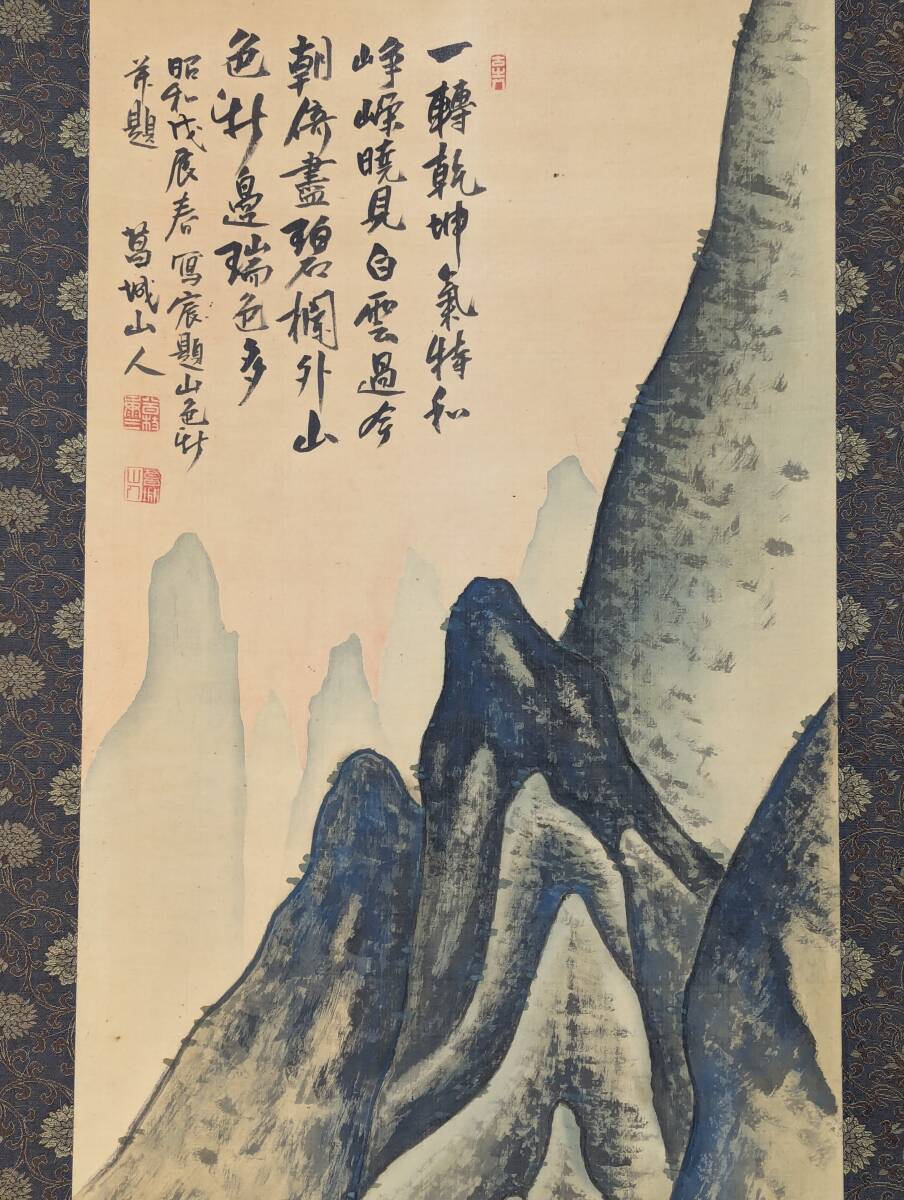 一轉乾坤氣特和
崢嶸曉見白雲過今
朝倚盡碧欄外山
色新邊瑞色多
昭和戊辰春寫宸題山色新
并題 葛城山人